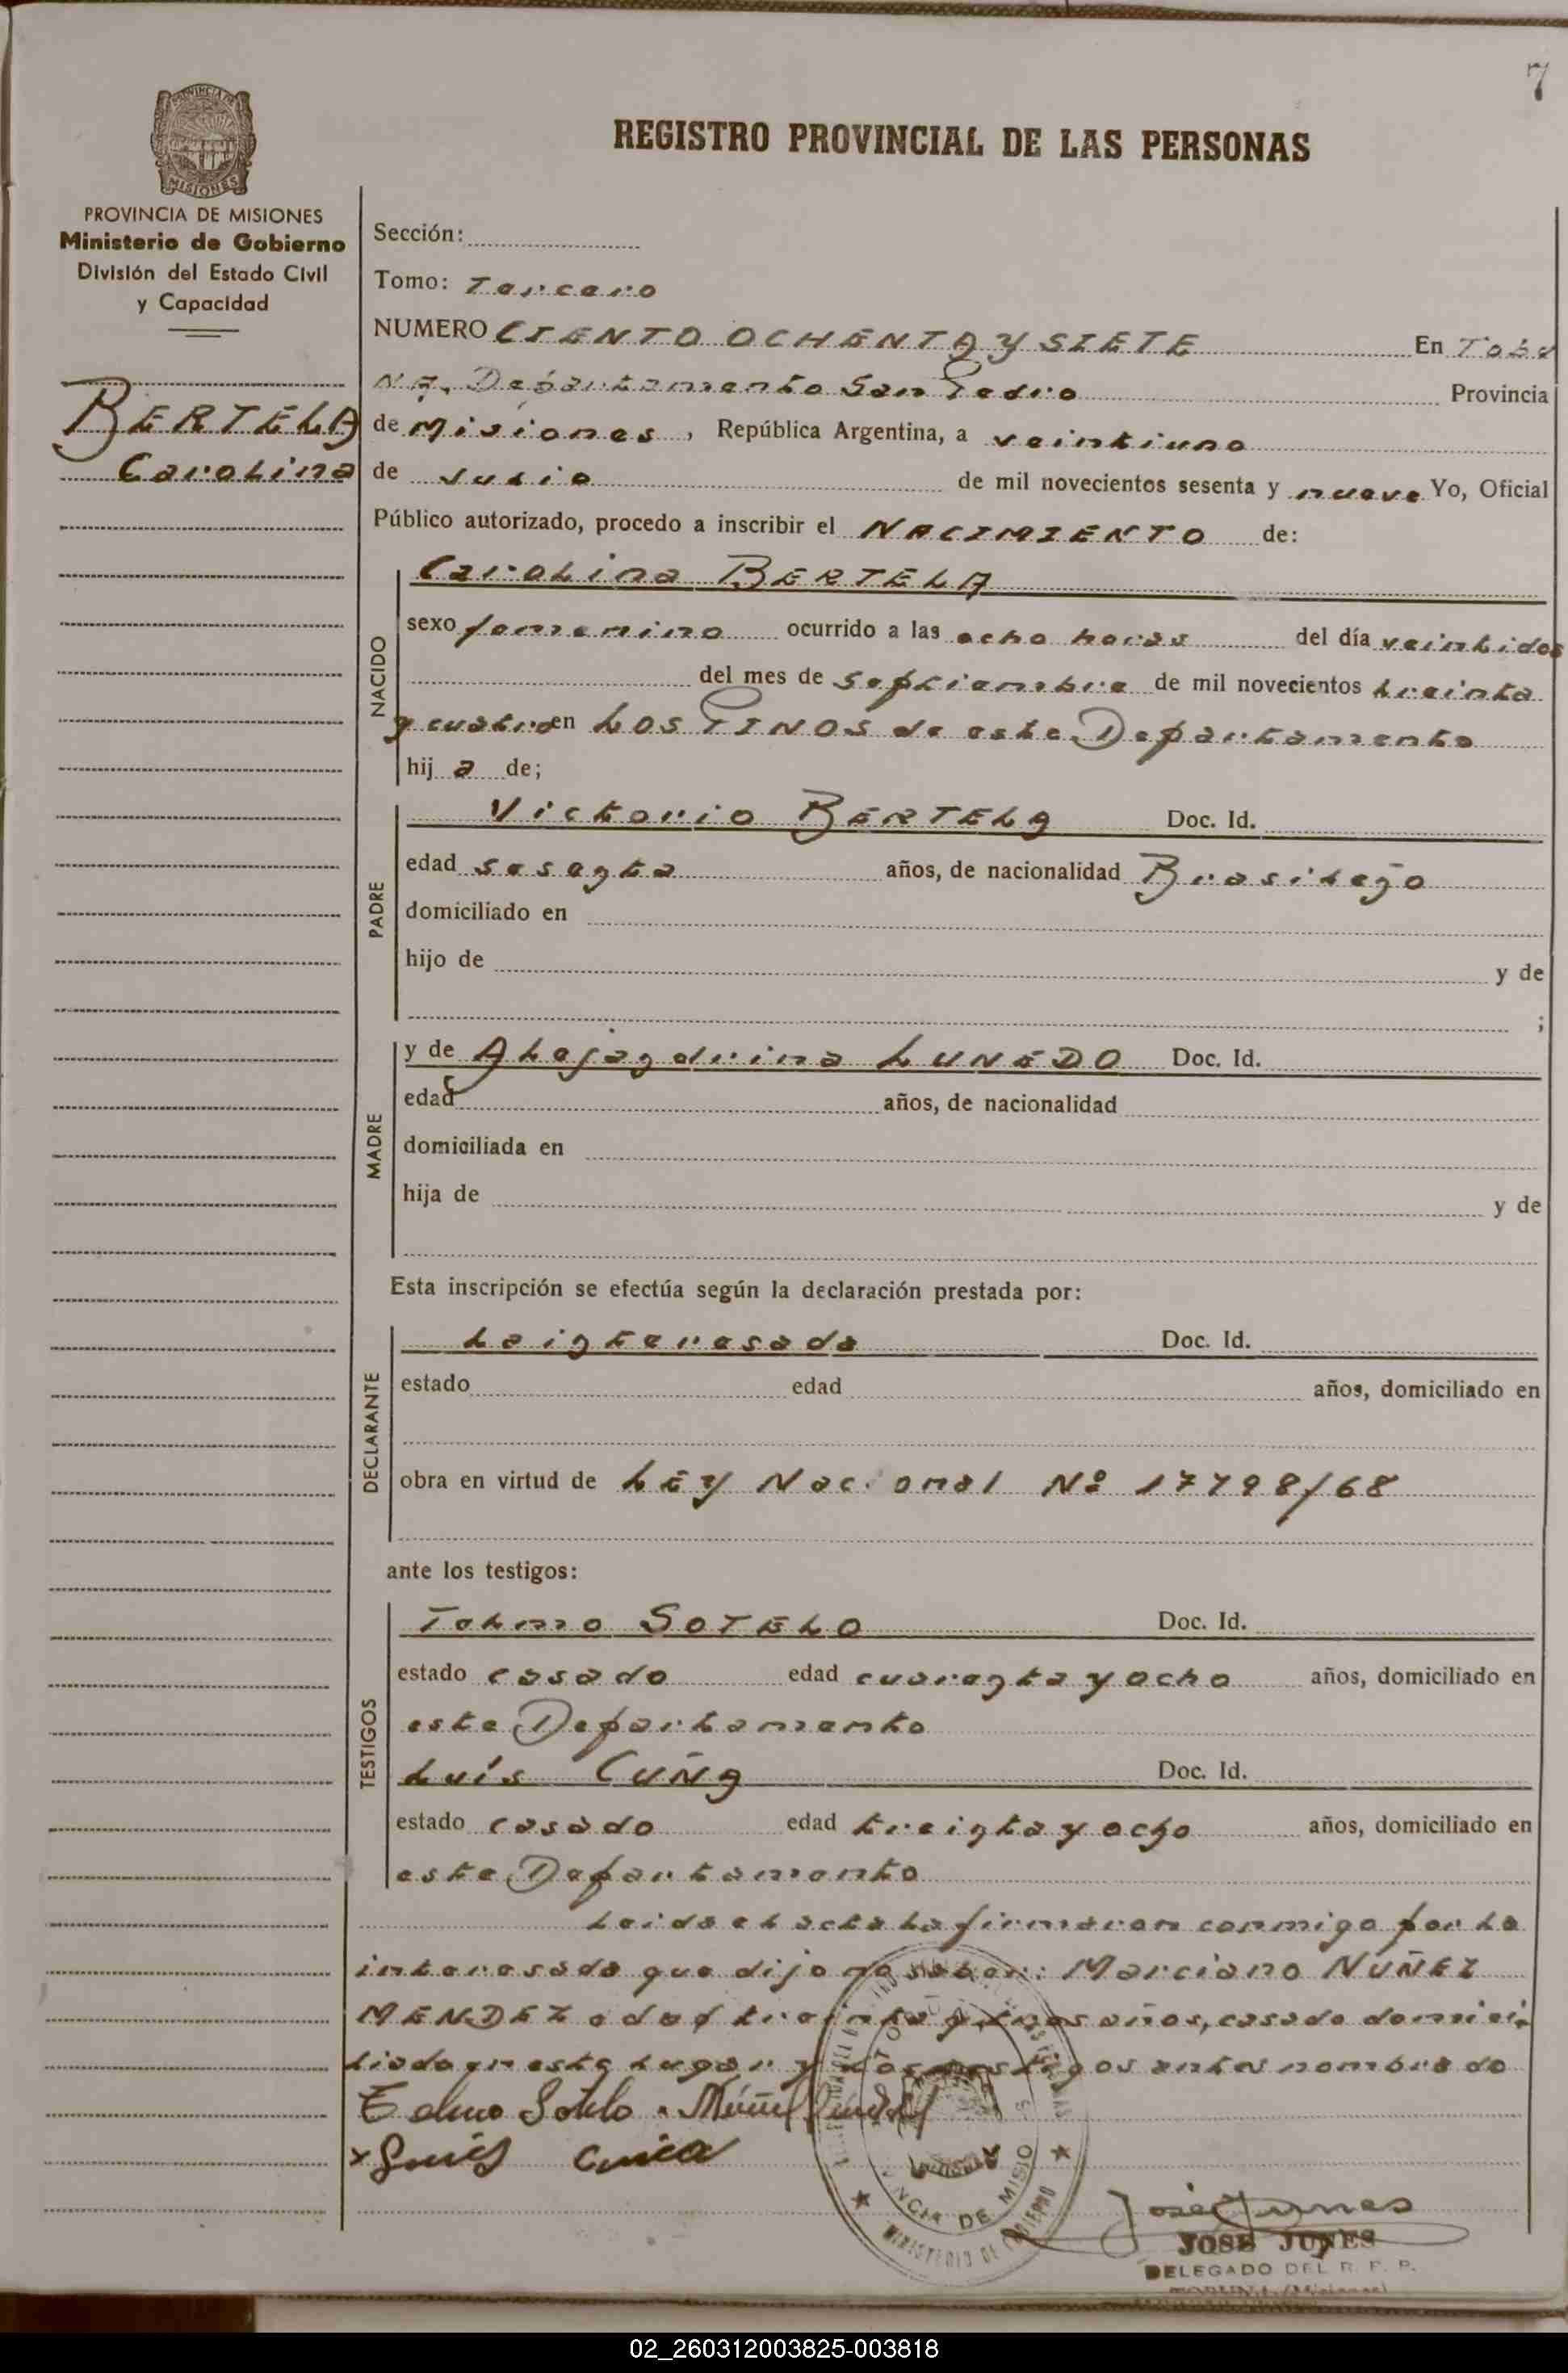 7
REGISTRO PROVINCIAL DE LAS PERSONAS
PROVINCIA DE MISIONES
Ministerio de Gobierno
División del Estado Civil
y Capacidad
BERTELA
Carolina
Sección:
Tomo: Tercero
NUMERO CIENTO OCHENTA Y SIETE En Tobu
na, Departamento San Pedro Provincia
de Misiones, República Argentina, a veintiuno
de Julio de mil novecientos sesenta y nueve Yo, Oficial
Público autorizado, procedo a inscribir el NACIMIENTO de:
NACIDO
Carolina BERTELA
sexo femenino ocurrido a las ocho horas del día veintidos
del mes de septiembre de mil novecientos treinta
y cuatro en LOS PINOS de este Departamento
hij a de;
PADRE
Victorio BERTELA Doc. Id.
edad sesenta años, de nacionalidad Brasileño
domiciliado en
hijo de y de
;
MADRE
y de Alejandrina LUNEDO Doc. Id.
edad años, de nacionalidad
domiciliada en
hija de y de
Esta inscripción se efectúa según la declaración prestada por:
DECLARANTE
La interesada Doc. Id.
estado edad años, domiciliado en
obra en virtud de LEY Nacional Nº 17798/68
ante los testigos:
TESTIGOS
Telmo SOTELO Doc. Id.
estado casado edad cuarenta y ocho años, domiciliado en
este Departamento
Luís CUÑA Doc. Id.
estado casado edad treinta y ocho años, domiciliado en
este Departamento
Leida el acta la firmaron conmigo por la
interesada que dijo no saber: Marciano NUÑEZ
MENDEZ edad treinta y años, casado domici
liado en este lugar y los testigos antes nombrado
Telmo Sotelo
x Luis Cuña
NCIA DE MISIO
MINISTERIO DE GOBIERNO
José Junes
JOSE JUNES
DELEGADO DEL R. P. P.
02_260312003825-003818